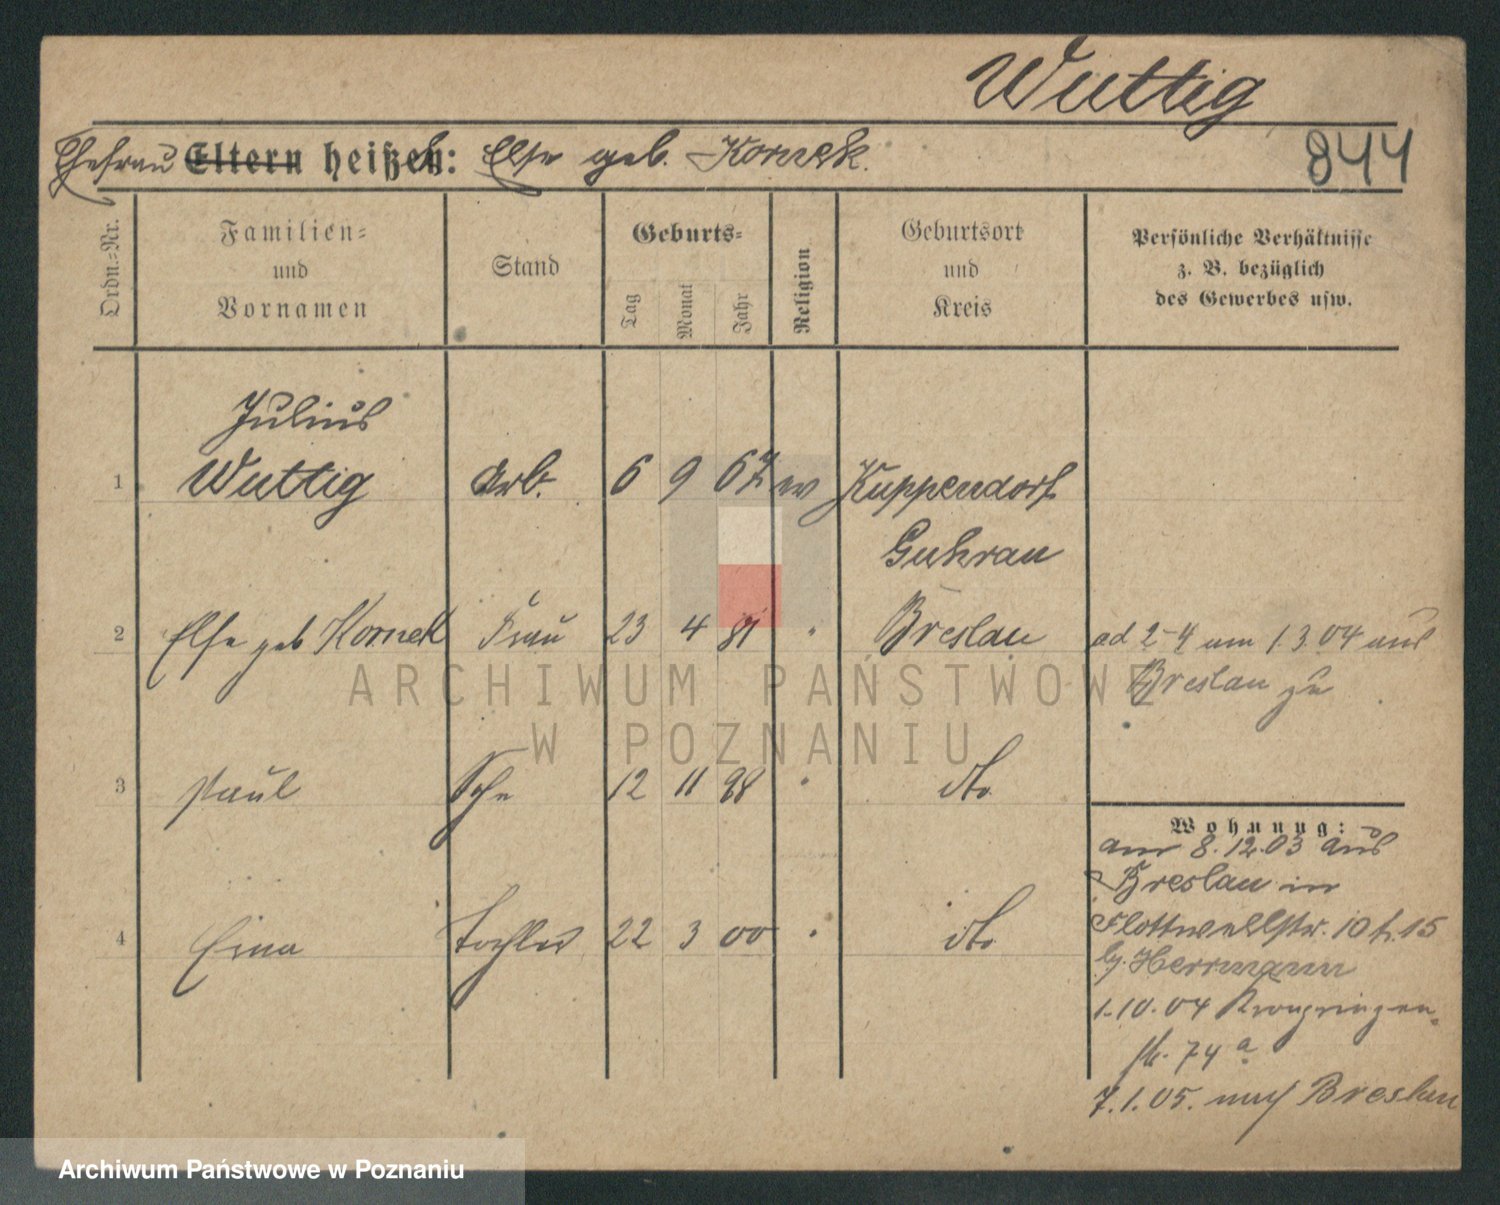 Wuttig
Ehefrau Eltern heißen: Else geb. Kornek.
844
Ordn.-Nr.
Familien- und Vornamen
Stand
Geburts-
Tag
Monat
Jahr
Religion
Geburtsort und Kreis
Persönliche Verhältnisse
z. B. bezüglich
des Gewerbes usw.
Julius
1 Wuttig Arb. 6 9 67 ev Kuppendorf
Guhrau
2 Else geb Kornek Frau 23 4 81 " Breslau
ad 2-4 am 1.3.04 aus
Breslau zu
3 Paul Sohn 12 11 98 " dto
4 Erna Tochter 22 3 00 " dto
Wohnung:
am 8.12.03 aus
Breslau in
Flottwellstr. 10 h. 15
by. Herrmann
1.10.04 Kronprinzen-
str. 74 a
7.1.05. nach Breslau
ARCHIWUM PAŃSTWOWE
W POZNANIU
Archiwum Państwowe w Poznaniu